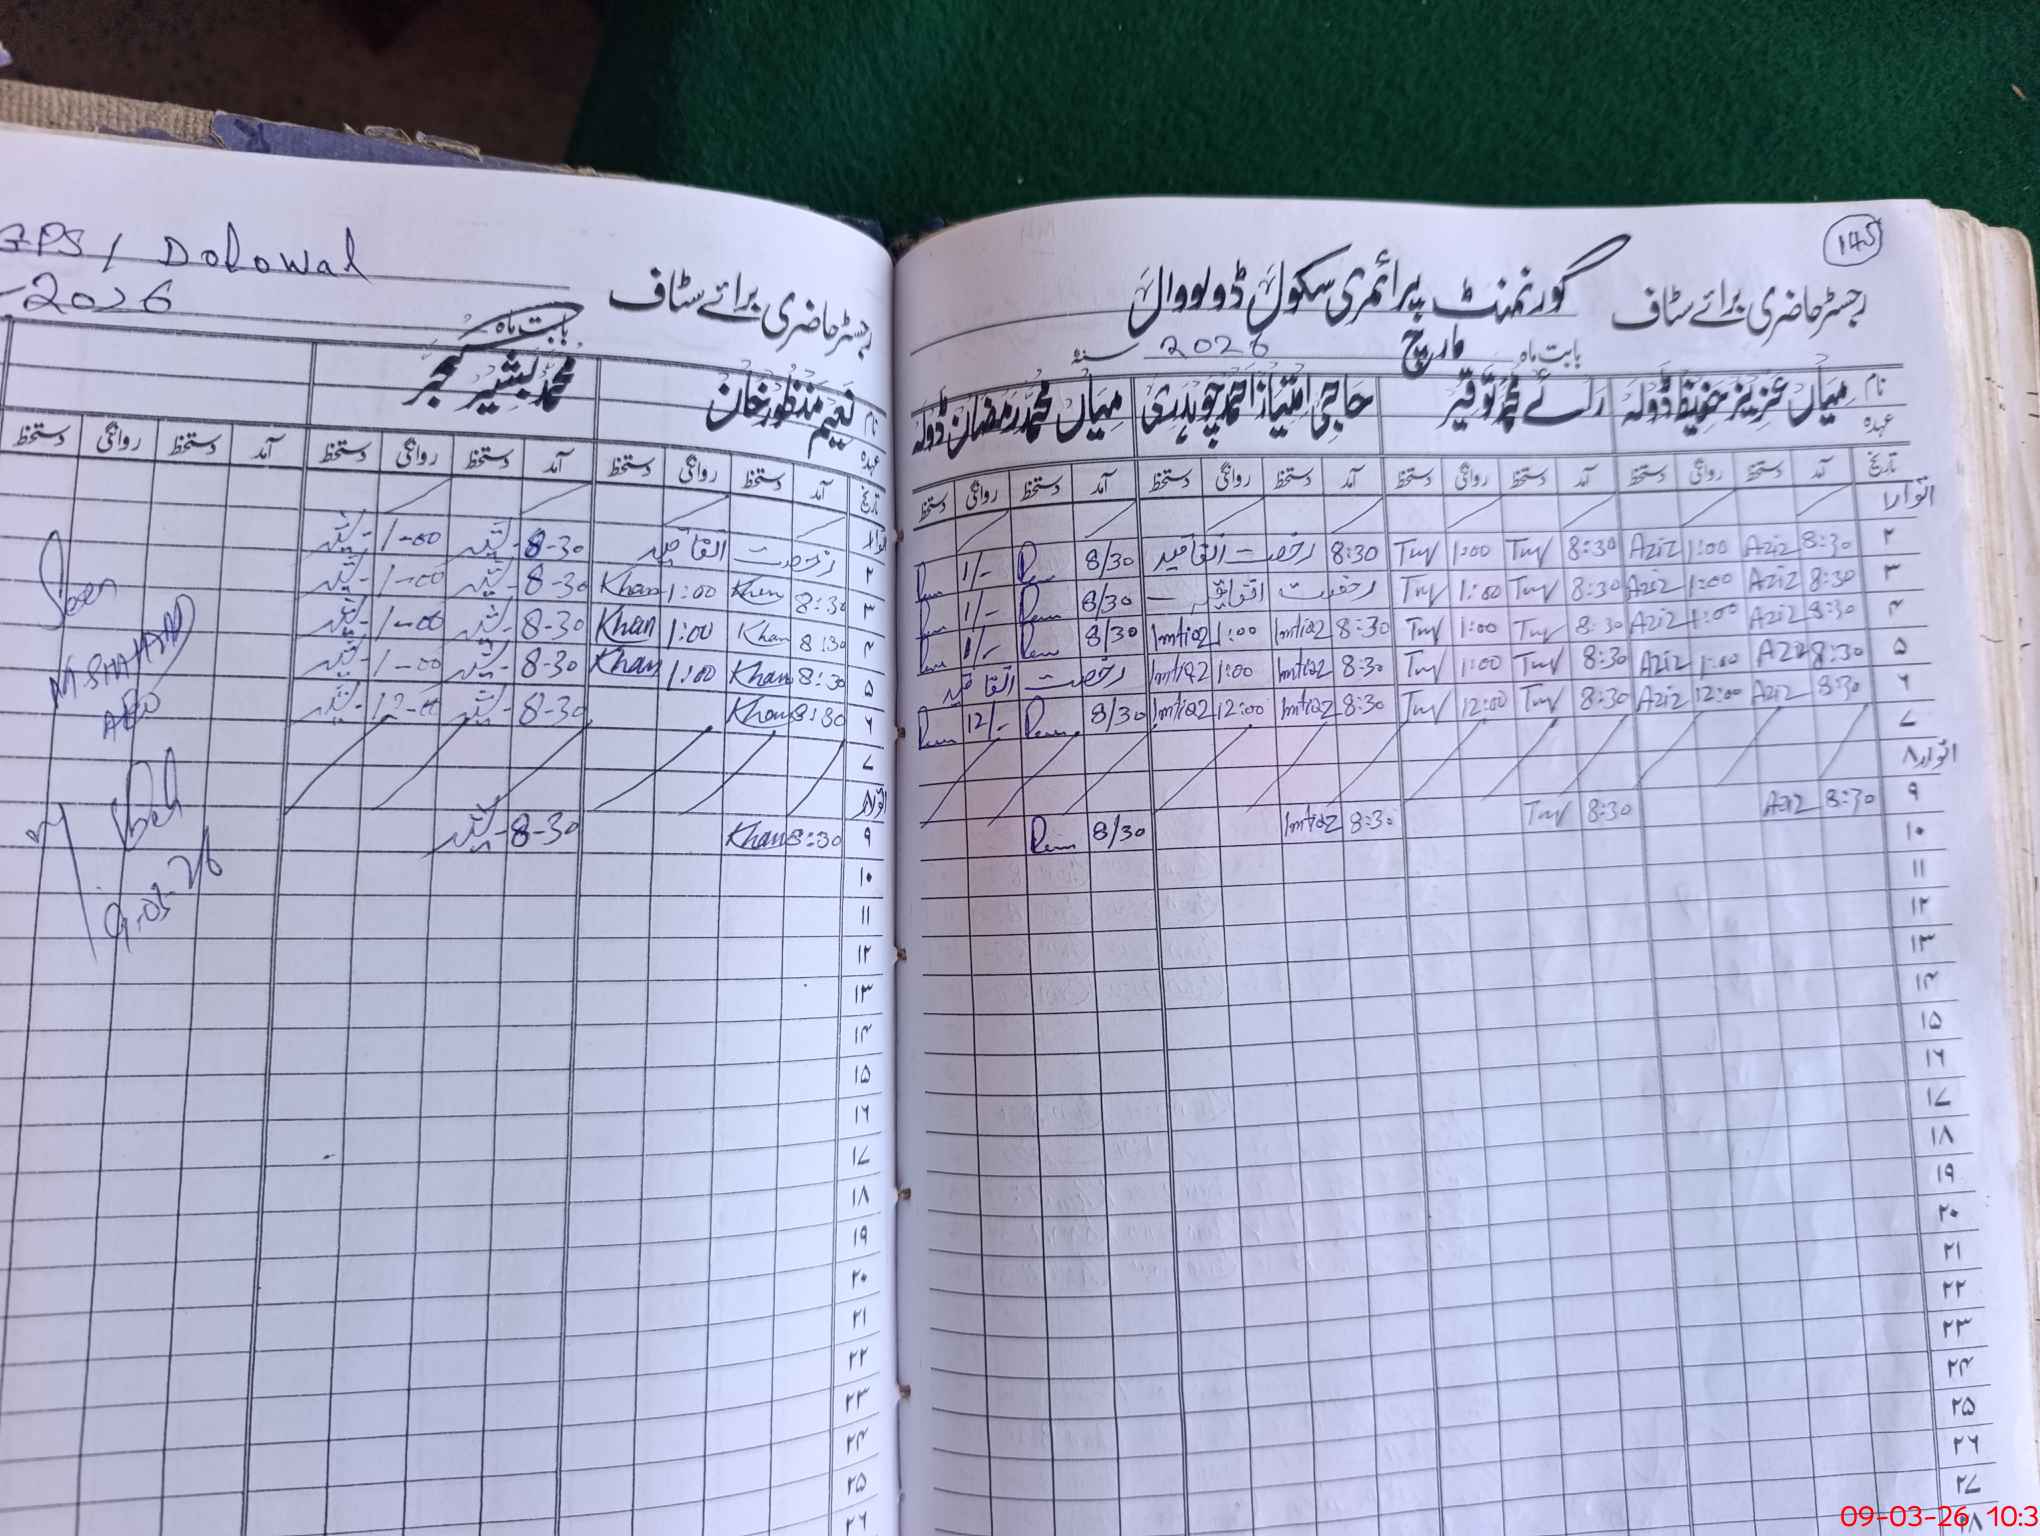 GPS / Dolowal
2026
رجسٹر حاضری برائے سٹاف
بابت ماہ
نام نعیم منظور خان محمد بشیر گجر
عہدہ
تاریخ آمد دستخط روانگی دستخط آمد دستخط روانگی دستخط آمد دستخط روانگی دستخط
اتوار ۱
۲ رخصت اتفاقیہ 8-30 بشیر 1-00 بشیر
۳ 8:30 Khan 1:00 Khan 8-30 بشیر 1-00 بشیر
۴ 8:30 Khan 1:00 Khan 8-30 بشیر 1-00 بشیر
۵ 8:30 Khan 1:00 Khan 8-30 بشیر 1-00 بشیر
۶ 8:30 Khan 8-30 بشیر 12-00 بشیر
۷
اتوار ۸
۹ 8:30 Khan 8-30 بشیر
۱۰
۱۱
۱۲
۱۳
۱۴
۱۵
۱۶
۱۷
۱۸
۱۹
۲۰
۲۱
۲۲
۲۳
۲۴
۲۵
۲۶
Seen
M. SHAHZAD
AEO
9-03-26
145
رجسٹر حاضری برائے سٹاف گورنمنٹ پرائمری سکول ڈولووال
بابت ماہ مارچ 2026 سنہ
نام میاں عزیز حفیظ ڈولہ رائے محمد توقیر حاجی امتیاز احمد چوہدری میاں محمد رمضان ڈولہ
عہدہ
تاریخ آمد دستخط روانگی دستخط آمد دستخط روانگی دستخط آمد دستخط روانگی دستخط آمد دستخط روانگی دستخط
اتوار ۱
۲ 8:30 Aziz 1:00 Aziz 8:30 Tuy 1:00 Tuy 8:30 رخصت اتفاقیہ 8/30 1/-
۳ 8:30 Aziz 1:00 Aziz 8:30 Tuy 1:00 Tuy رخصت اتفاقیہ 8/30 1/-
۴ 8:30 Aziz 1:00 Aziz 8:30 Tuy 1:00 Tuy 8:30 Imtiaz 1:00 Imtiaz 8/30 1/-
۵ 8:30 Aziz 1:00 Aziz 8:30 Tuy 1:00 Tuy 8:30 Imtiaz 1:00 Imtiaz رخصت اتفاقیہ
۶ 8:30 Aziz 12:00 Aziz 8:30 Tuy 12:00 Tuy 8:30 Imtiaz 12:00 Imtiaz 8/30 12/-
۷
اتوار ۸
۹ 8:30 Aziz 8:30 Tuy 8:30 Imtiaz 8/30
۱۰
۱۱
۱۲
۱۳
۱۴
۱۵
۱۶
۱۷
۱۸
۱۹
۲۰
۲۱
۲۲
۲۳
۲۴
۲۵
۲۶
۲۷
۲۸
09-03-26 10:3